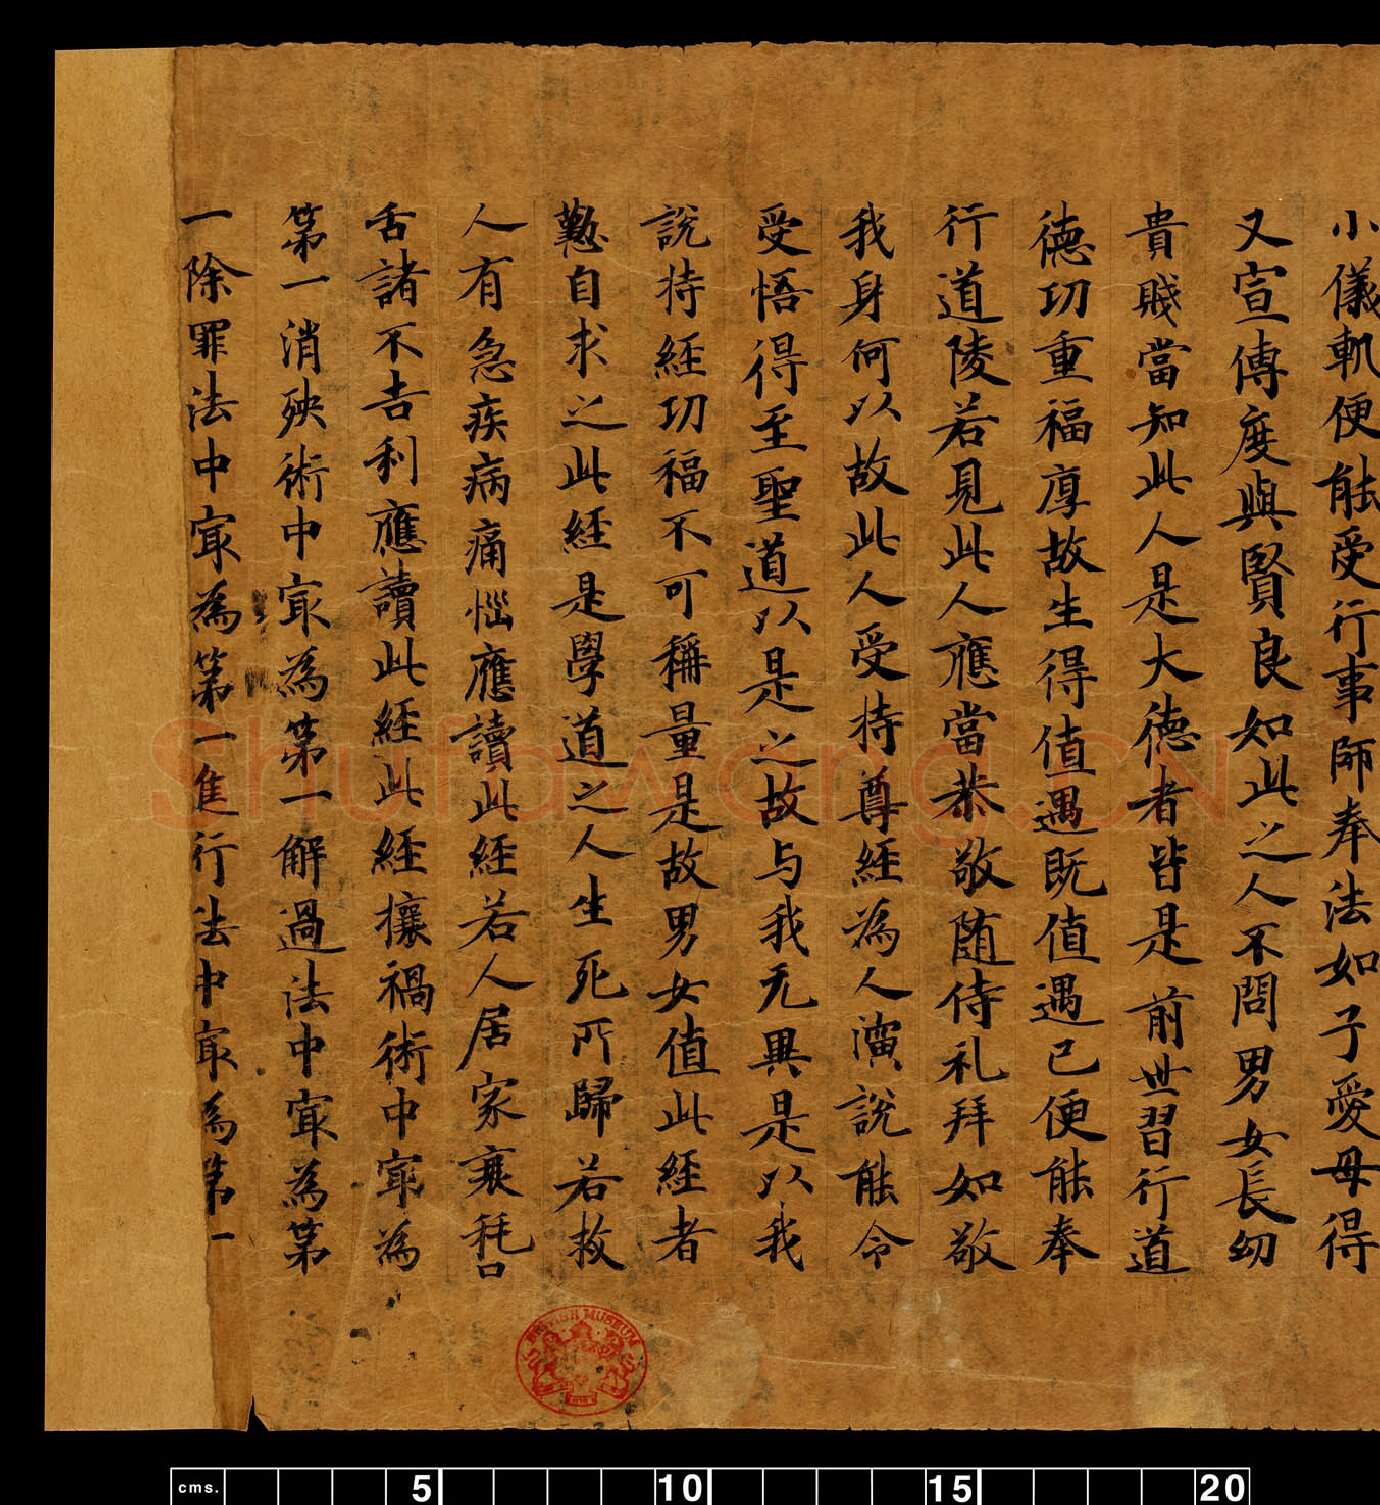 小儀軌便能受行事師奉法如子愛母得
又宣傳度與賢良如此之人不問男女長幼
貴賤當知此人是大德者皆是前世習行道
德功重福厚故生得值遇既值遇已便能奉
行道陵若見此人應當恭敬随侍礼拜如敬
我身何以故此人受持尊經為人演說能令
受悟得至聖道以是之故与我无異是以我
說持經功福不可稱量是故男女值此經者
懃自求之此經是學道之人生死所歸若救
人有急疾病痛惱應讀此經若人居家衰耗口
舌諸不吉利應讀此經此經攘禍術中冣為
第一消殃術中冣為第一解過法中冣為第
一除罪法中冣為第一進行法中冣為第一
Shufawang.CN
BRITISH MUSEUM
cms. 5 10 15 20